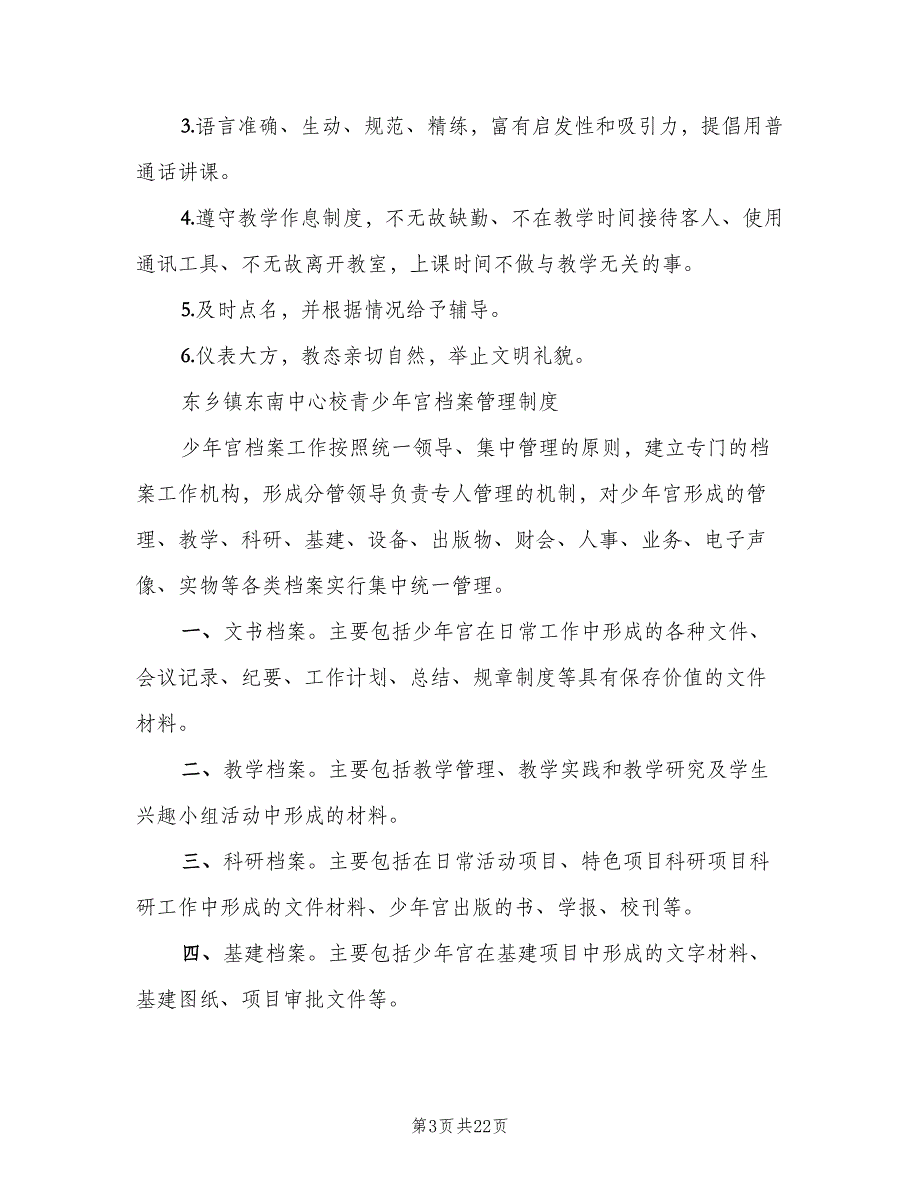 3.语言准确、生动、规范、精练，富有启发性和吸引力，提倡用普
通话讲课。
4.遵守教学作息制度，不无故缺勤、不在教学时间接待客人、使用
通讯工具、不无故离开教室，上课时间不做与教学无关的事。
5.及时点名，并根据情况给予辅导。
6.仪表大方，教态亲切自然，举止文明礼貌。
东乡镇东南中心校青少年宫档案管理制度
少年宫档案工作按照统一领导、集中管理的原则，建立专门的档
案工作机构，形成分管领导负责专人管理的机制，对少年宫形成的管
理、教学、科研、基建、设备、出版物、财会、人事、业务、电子声
像、实物等各类档案实行集中统一管理。
一、文书档案。主要包括少年宫在日常工作中形成的各种文件、
会议记录、纪要、工作计划、总结、规章制度等具有保存价值的文件
材料。
二、教学档案。主要包括教学管理、教学实践和教学研究及学生
兴趣小组活动中形成的材料。
三、科研档案。主要包括在日常活动项目、特色项目科研项目科
研工作中形成的文件材料、少年宫出版的书、学报、校刊等。
四、基建档案。主要包括少年宫在基建项目中形成的文字材料、
基建图纸、项目审批文件等。
第3页共22页